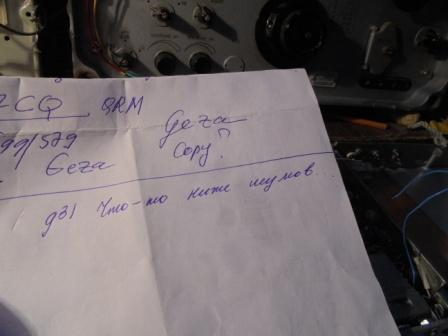 CQ QRM
99/579
Geza
Geza
Copy?
Что-то ниже шумов...